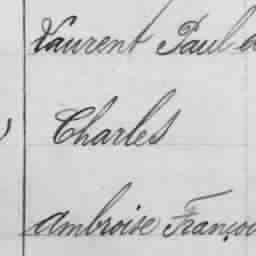 Laurent Paul
Charles
Ambroise François